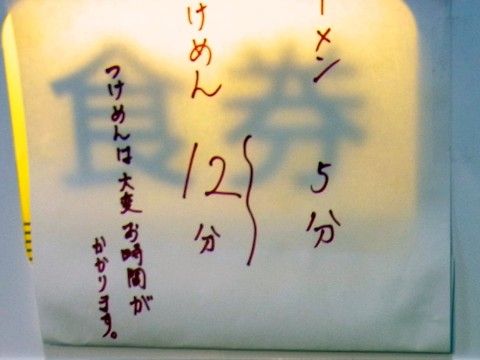 ーメン 5分
つけめん 12分
つけめんは大変お時間が
かかります。
食券